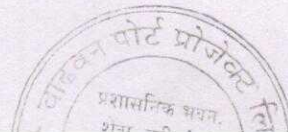 वाढवन पोर्ट प्रोजेक्ट लि
प्रशासनिक भवन,